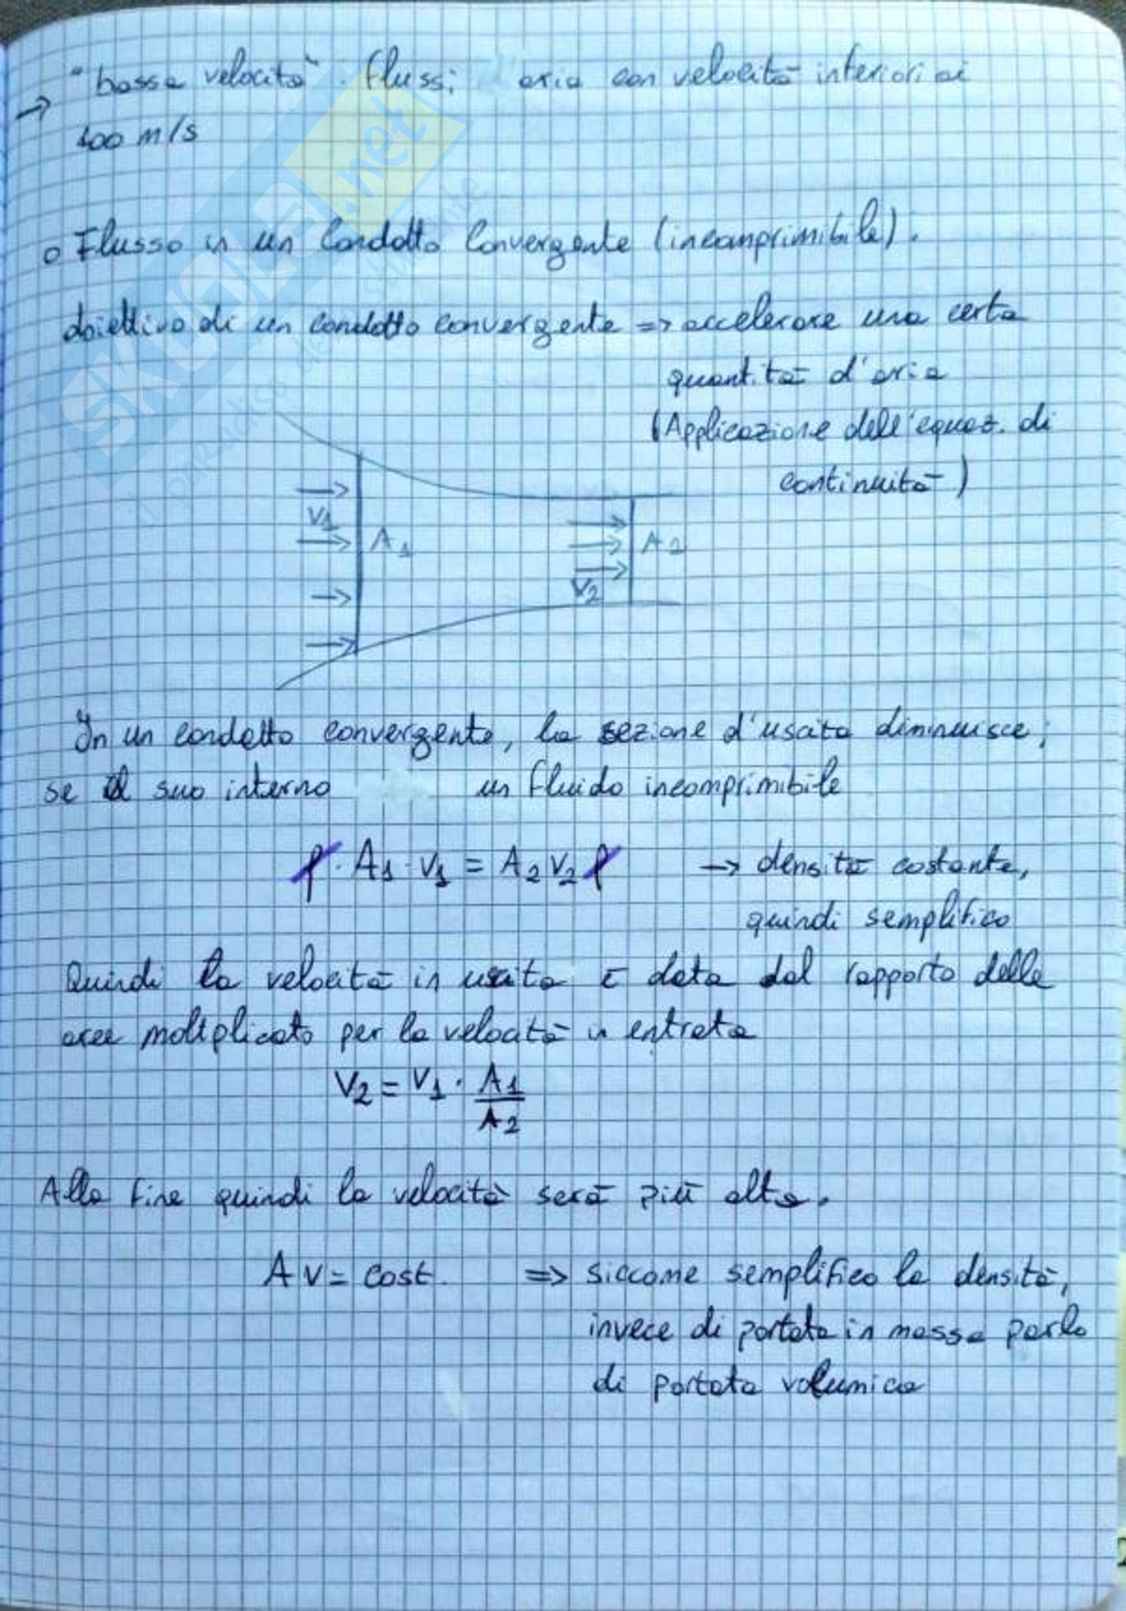 → "bassa velocità". Flussi aria con velocità inferiori ai
100 m/s
o Flusso in un Condotto Convergente (incomprimibile).
obiettivo di un condotto convergente => accelerare una certa
quantità d'aria
(Applicazione dell'equaz. di
continuità)
V1
A1
A2
V2
In un condotto convergente, la sezione d'uscita diminuisce;
se al suo interno un fluido incomprimibile
ρ · A1 · V1 = A2 V2 ρ → densità costante,
quindi semplifico
Quindi la velocità in uscita è data dal rapporto delle
aree moltiplicato per la velocità in entrata
V2 = V1 · A1
A2
Alla fine quindi la velocità sarà più alta.
A V = cost. => siccome semplifico la densità,
invece di portata in massa parlo
di portata volumica
SKUOLA.net